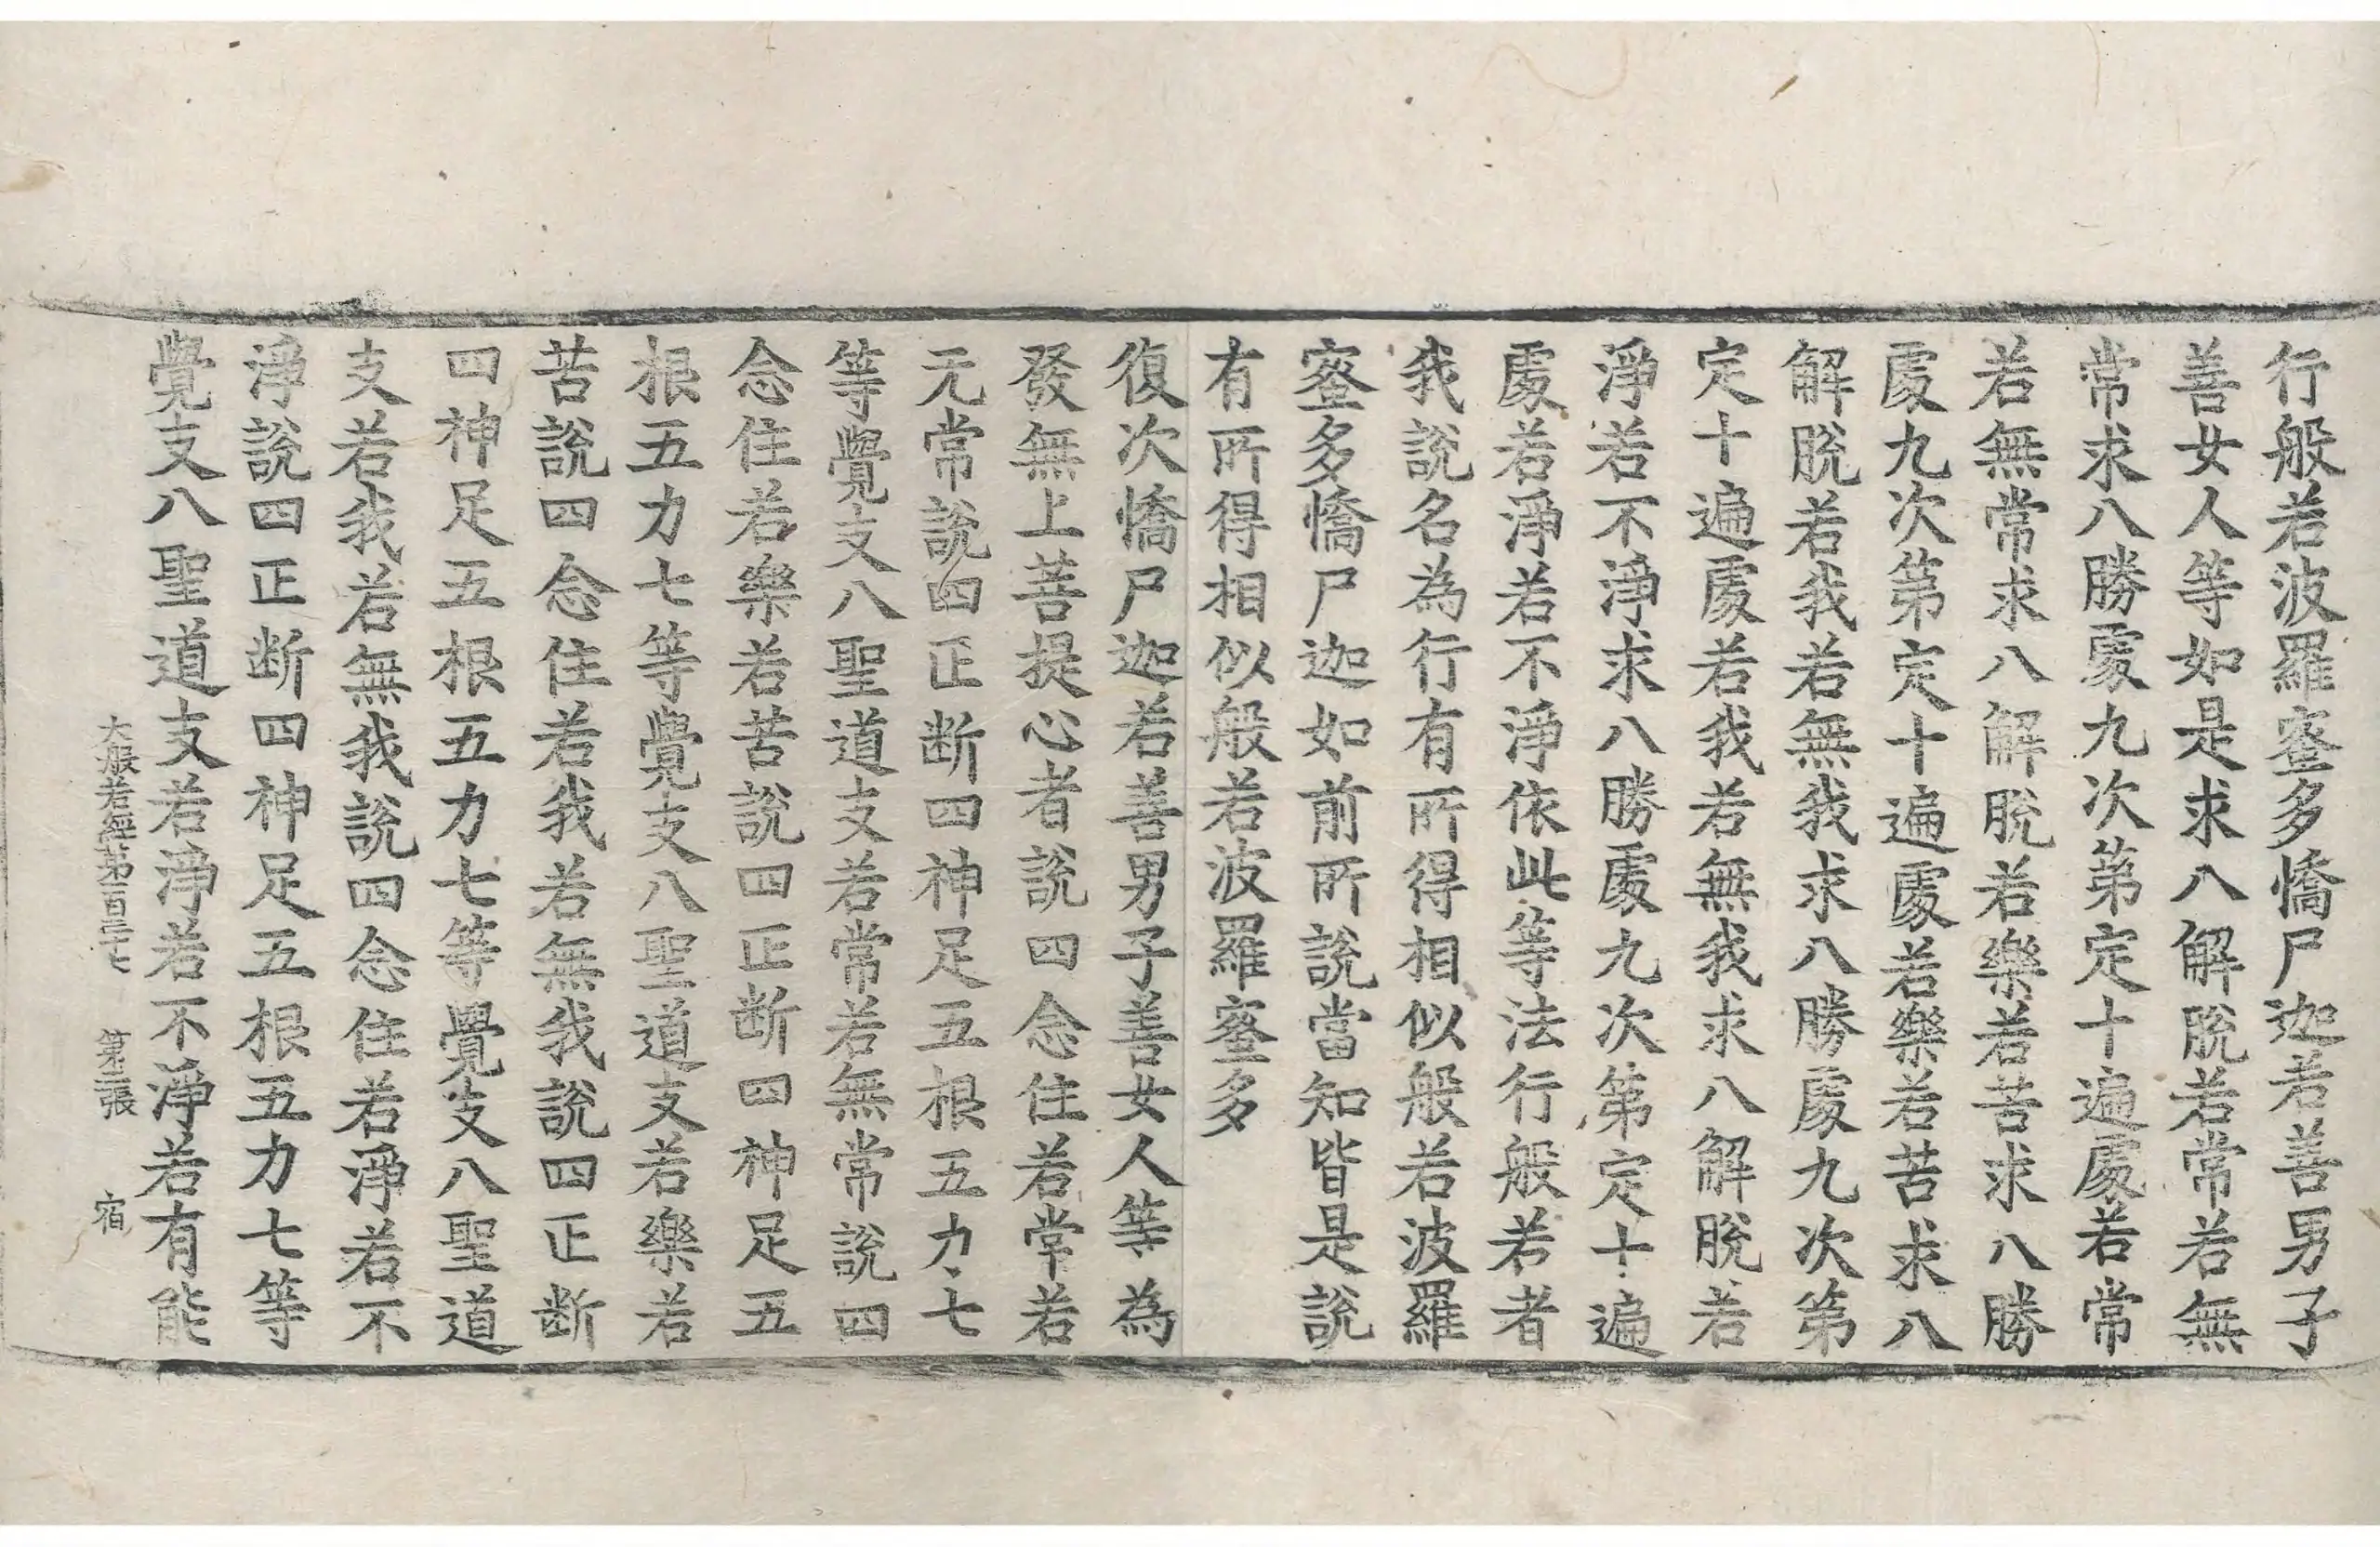 行般若波羅蜜多憍尸迦若善男子
善女人等如是求八解脫若常若無
常求八勝處九次第定十遍處若常
若無常求八解脫若樂若苦求八勝
處九次第定十遍處若樂若苦求八
解脫若我若無我求八勝處九次第
定十遍處若我若無我求八解脫若
淨若不淨求八勝處九次第定十遍
處若淨若不淨依此等法行般若者
我說名為行有所得相似般若波羅
蜜多憍尸迦如前所說當知皆是說
有所得相似般若波羅蜜多
復次憍尸迦若善男子善女人等為
發無上菩提心者說四念住若常若
无常說四正断四神足五根五力七
等覺支八聖道支若常若無常說四
念住若樂若苦說四正断四神足五
根五力七等覺支八聖道支若樂若
苦說四念住若我若無我說四正断
四神足五根五力七等覺支八聖道
支若我若無我說四念住若淨若不
淨說四正断四神足五根五力七等
覺支八聖道支若淨若不淨若有能
大般若經第一百三十七 第三張 宿